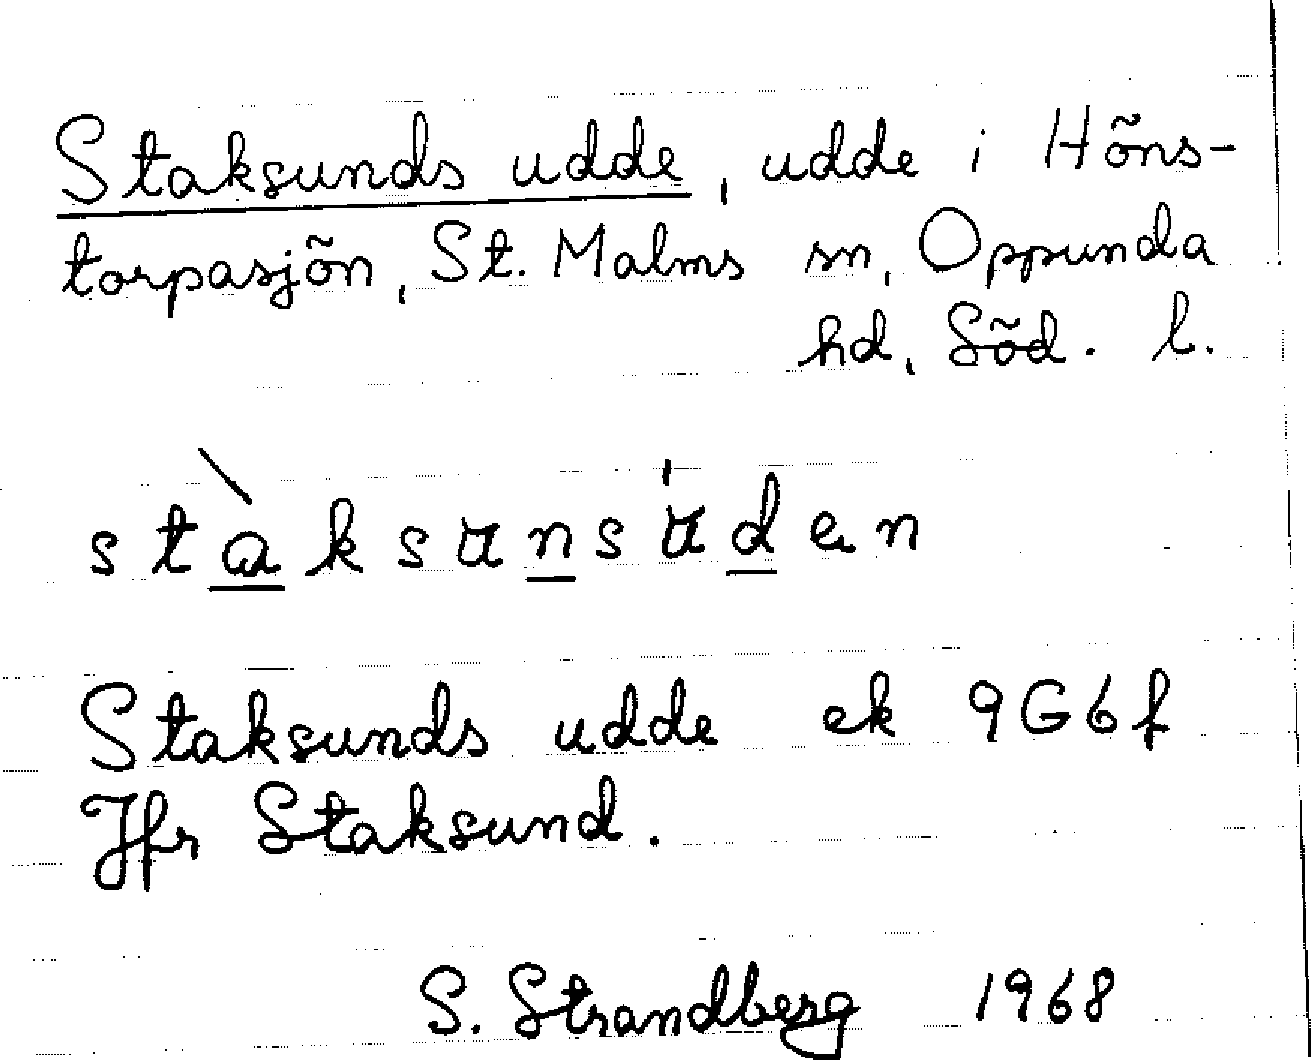 Staksunds udde, udde i Höns-
torpasjön, St. Malms sn, Oppunda
hd, Söd. l.
stàksunsùden
Staksunds udde ek 9G6f
Jfr Staksund.
S. Strandberg 1968